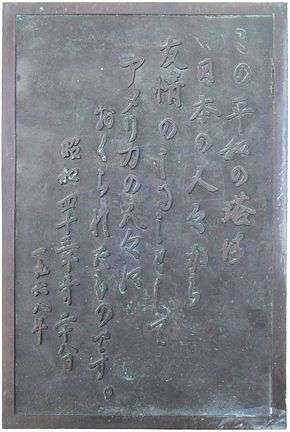 この平和の塔は
日本の人々から
友情のしるしとして
アメリカの人々に
おくられたものです。
昭和四十三年三月二十八日
一九六八年